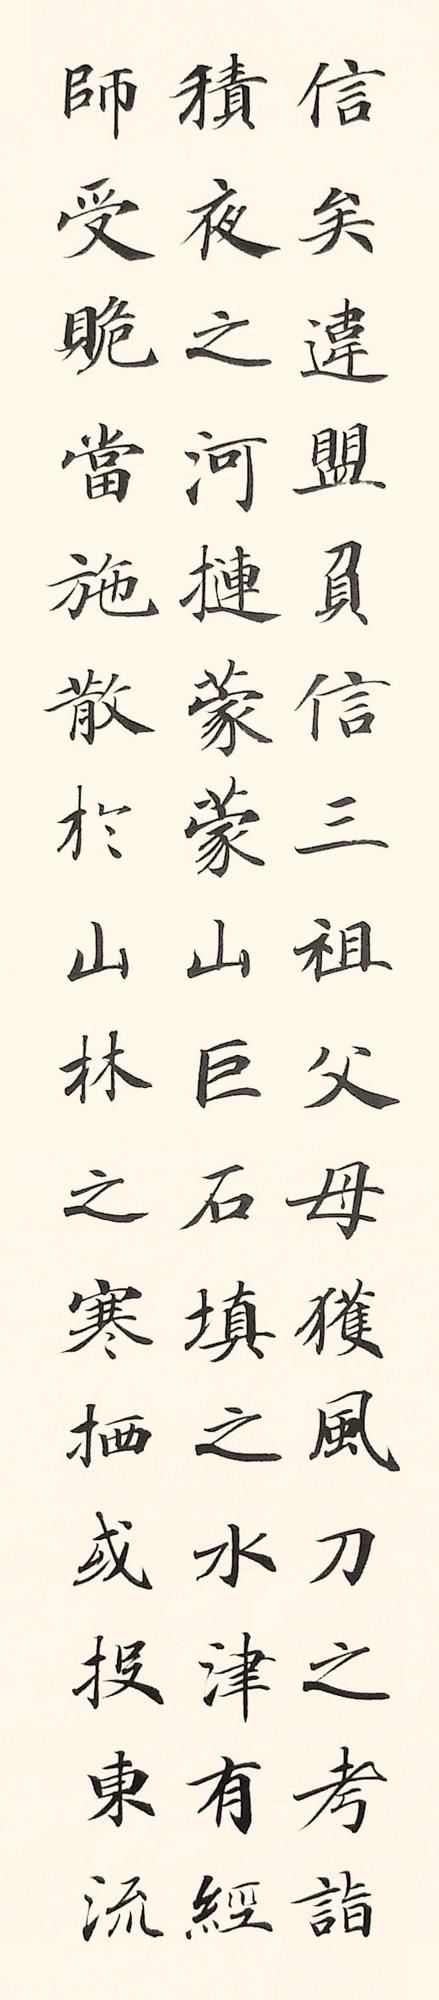 信矣違盟負信三祖父母獲風刀之考詣
積夜之河摙蒙蒙山巨石填之水津有經
師受賍當施散於山林之寒栖或投東流